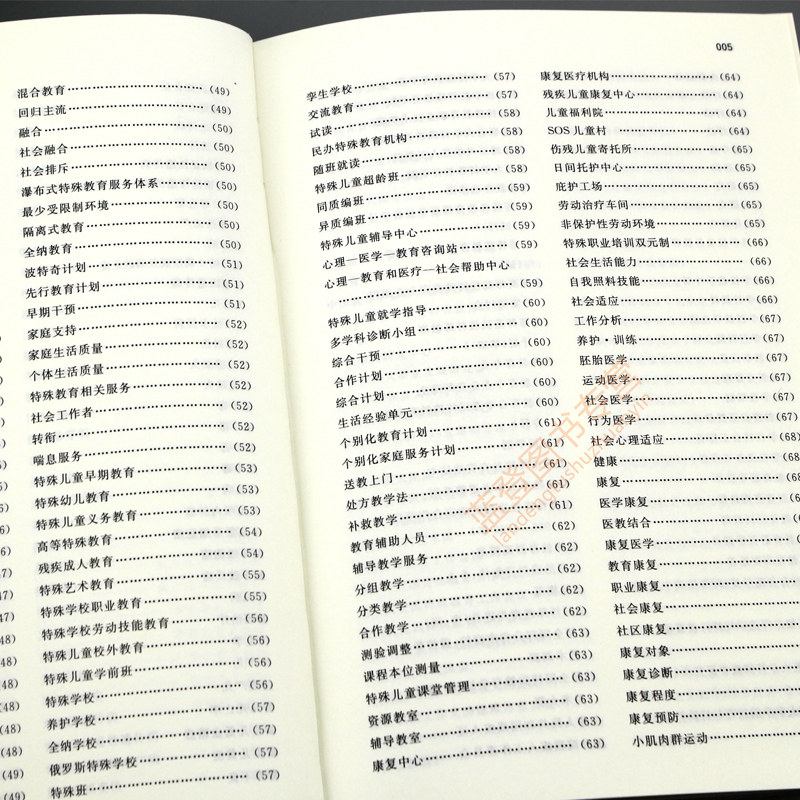 混合教育……(49)
回归主流……(49)
融合……(50)
社会融合……(50)
社会排斥……(50)
瀑布式特殊教育服务体系……(50)
最少受限制环境……(50)
隔离式教育……(50)
全纳教育……(50)
波特奇计划……(51)
先行教育计划……(51)
早期干预……(51)
家庭支持……(52)
家庭生活质量……(52)
个体生活质量……(52)
特殊教育相关服务……(52)
社会工作者……(52)
转衔……(52)
喘息服务……(52)
特殊儿童早期教育……(53)
特殊幼儿教育……(53)
特殊儿童义务教育……(53)
高等特殊教育……(54)
残疾成人教育……(54)
特殊艺术教育……(55)
特殊学校职业教育……(55)
特殊学校劳动技能教育……(56)
特殊儿童校外教育……(56)
特殊儿童学前班……(56)
特殊学校……(56)
养护学校……(57)
全纳学校……(57)
俄罗斯特殊学校……(57)
特殊班……(57)
005
孪生学校……(57)
交流教育……(57)
试读……(58)
民办特殊教育机构……(58)
随班就读……(58)
特殊儿童超龄班……(58)
同质编班……(59)
异质编班……(59)
特殊儿童辅导中心……(59)
心理—医学—教育咨询站……(59)
心理—教育和医疗—社会帮助中心
……(59)
特殊儿童就学指导……(60)
多学科诊断小组……(60)
综合干预……(60)
合作计划……(60)
综合计划……(60)
生活经验单元……(60)
个别化教育计划……(61)
个别化家庭服务计划……(61)
送教上门……(61)
处方教学法……(61)
补救教学……(61)
教育辅助人员……(62)
辅导教学服务……(62)
分组教学……(62)
分类教学……(62)
合作教学……(62)
测验调整……(63)
课程本位测量……(63)
特殊儿童课堂管理……(63)
资源教室……(63)
辅导教室……(63)
康复中心……(63)
康复医疗机构……(64)
残疾儿童康复中心……(64)
儿童福利院……(64)
SOS儿童村 ……(64)
伤残儿童寄托所……(64)
日间托护中心……(65)
庇护工场……(65)
劳动治疗车间……(65)
非保护性劳动环境……(65)
特殊职业培训双元制……(66)
社会生活能力……(66)
自我照料技能……(66)
社会适应……(66)
工作分析……(67)
养护·训练……(67)
胚胎医学……(67)
运动医学……(67)
社会医学……(67)
行为医学……(67)
社会心理适应……(68)
健康……(68
康复……
医学康复……
医教结合……
康复医学……
教育康复……
职业康复……
社会康复……
社区康复……
康复对象……
康复诊断……
康复程度……
康复预防……
小肌肉群运动……